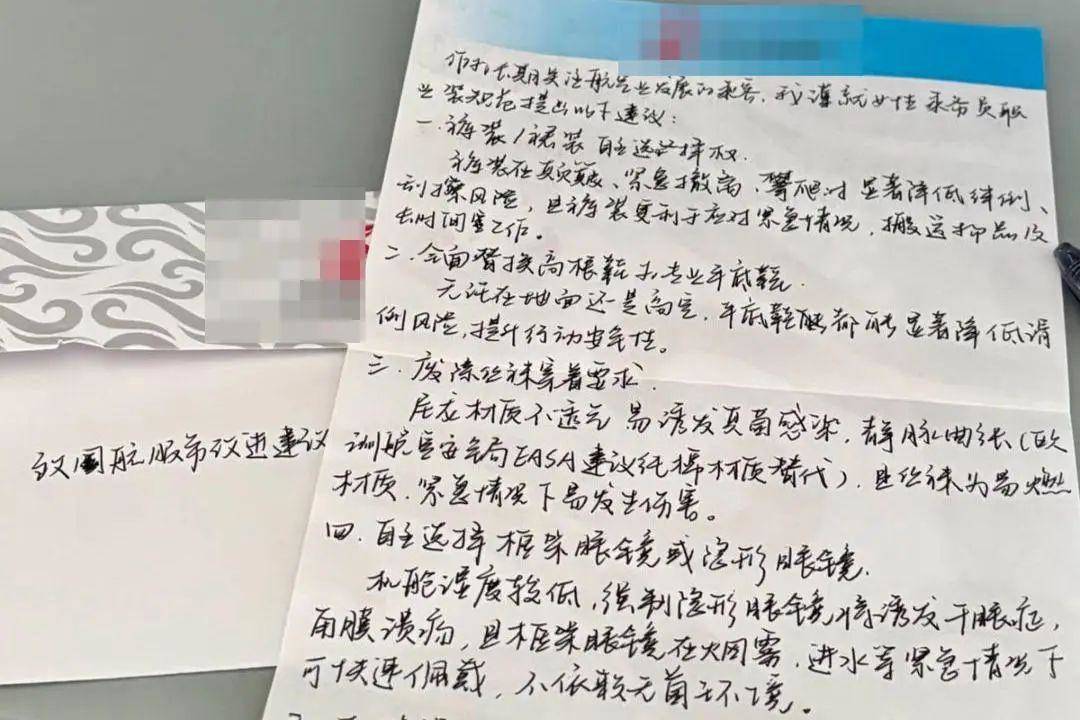 作为长期关注航空业发展的乘客，我谨就女性乘务员职
业装规范提出以下建议：
一.裤装/裙装自主选择权.
裤装在颠簸、紧急撤离、攀爬时显著降低绊倒、
刮擦风险，且裤装更利于应对紧急情况，搬运物品及
长时间工作。
二.全面替换高根鞋为专业平底鞋.
无论在地面还是高空，平底鞋能都能显著降低滑
倒风险，提升行动安全性。
三.废除丝袜穿着要求.
尼龙材质不透气易诱发真菌感染，静脉曲张(欧
洲航空安全局EASA建议纯棉材质替代)，且丝袜为易燃
材质，紧急情况下易发生伤害。
四.自主选择框架眼镜或隐形眼镜.
机舱湿度较低，强制隐形眼镜将诱发干眼症，
角膜溃疡，且框架眼镜在烟雾，进水等紧急情况下
可快速佩戴，不依赖无菌环境。
致国航服饰改进建议